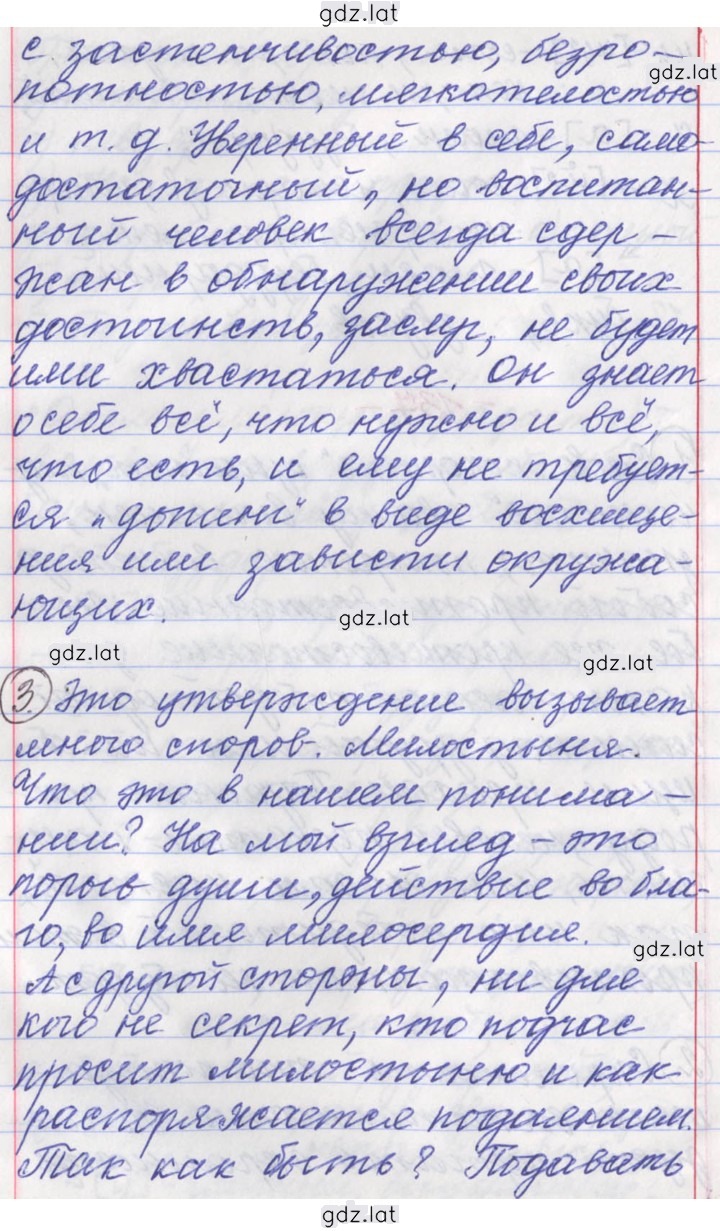 gdz.lat
с застенчивостью, безро-
gdz.lat
потностью, мягкотелостью
и т. д. Уверенный в себе, само-
достаточный, но воспитан-
ный человек всегда сдер-
жан в обнаружении своих
достоинств, заслуг, не будет
ими хвастаться. Он знает
о себе всё, что нужно и всё,
что есть, и ему не требует-
ся „допинг" в виде восхище-
ния или зависти окружа-
ющих.
gdz.lat
gdz.lat
gdz.lat
3. Это утверждение вызывает
много споров. Милостыня.
Что это в нашем понима-
нии? На мой взгляд - это
порыв души, действие во бла-
го, во имя милосердия.
gdz.lat
А с другой стороны, ни для
кого не секрет, кто подчас
просит милостыню и как
распоряжается подаянием.
Так как быть? Подавать
gdz.lat